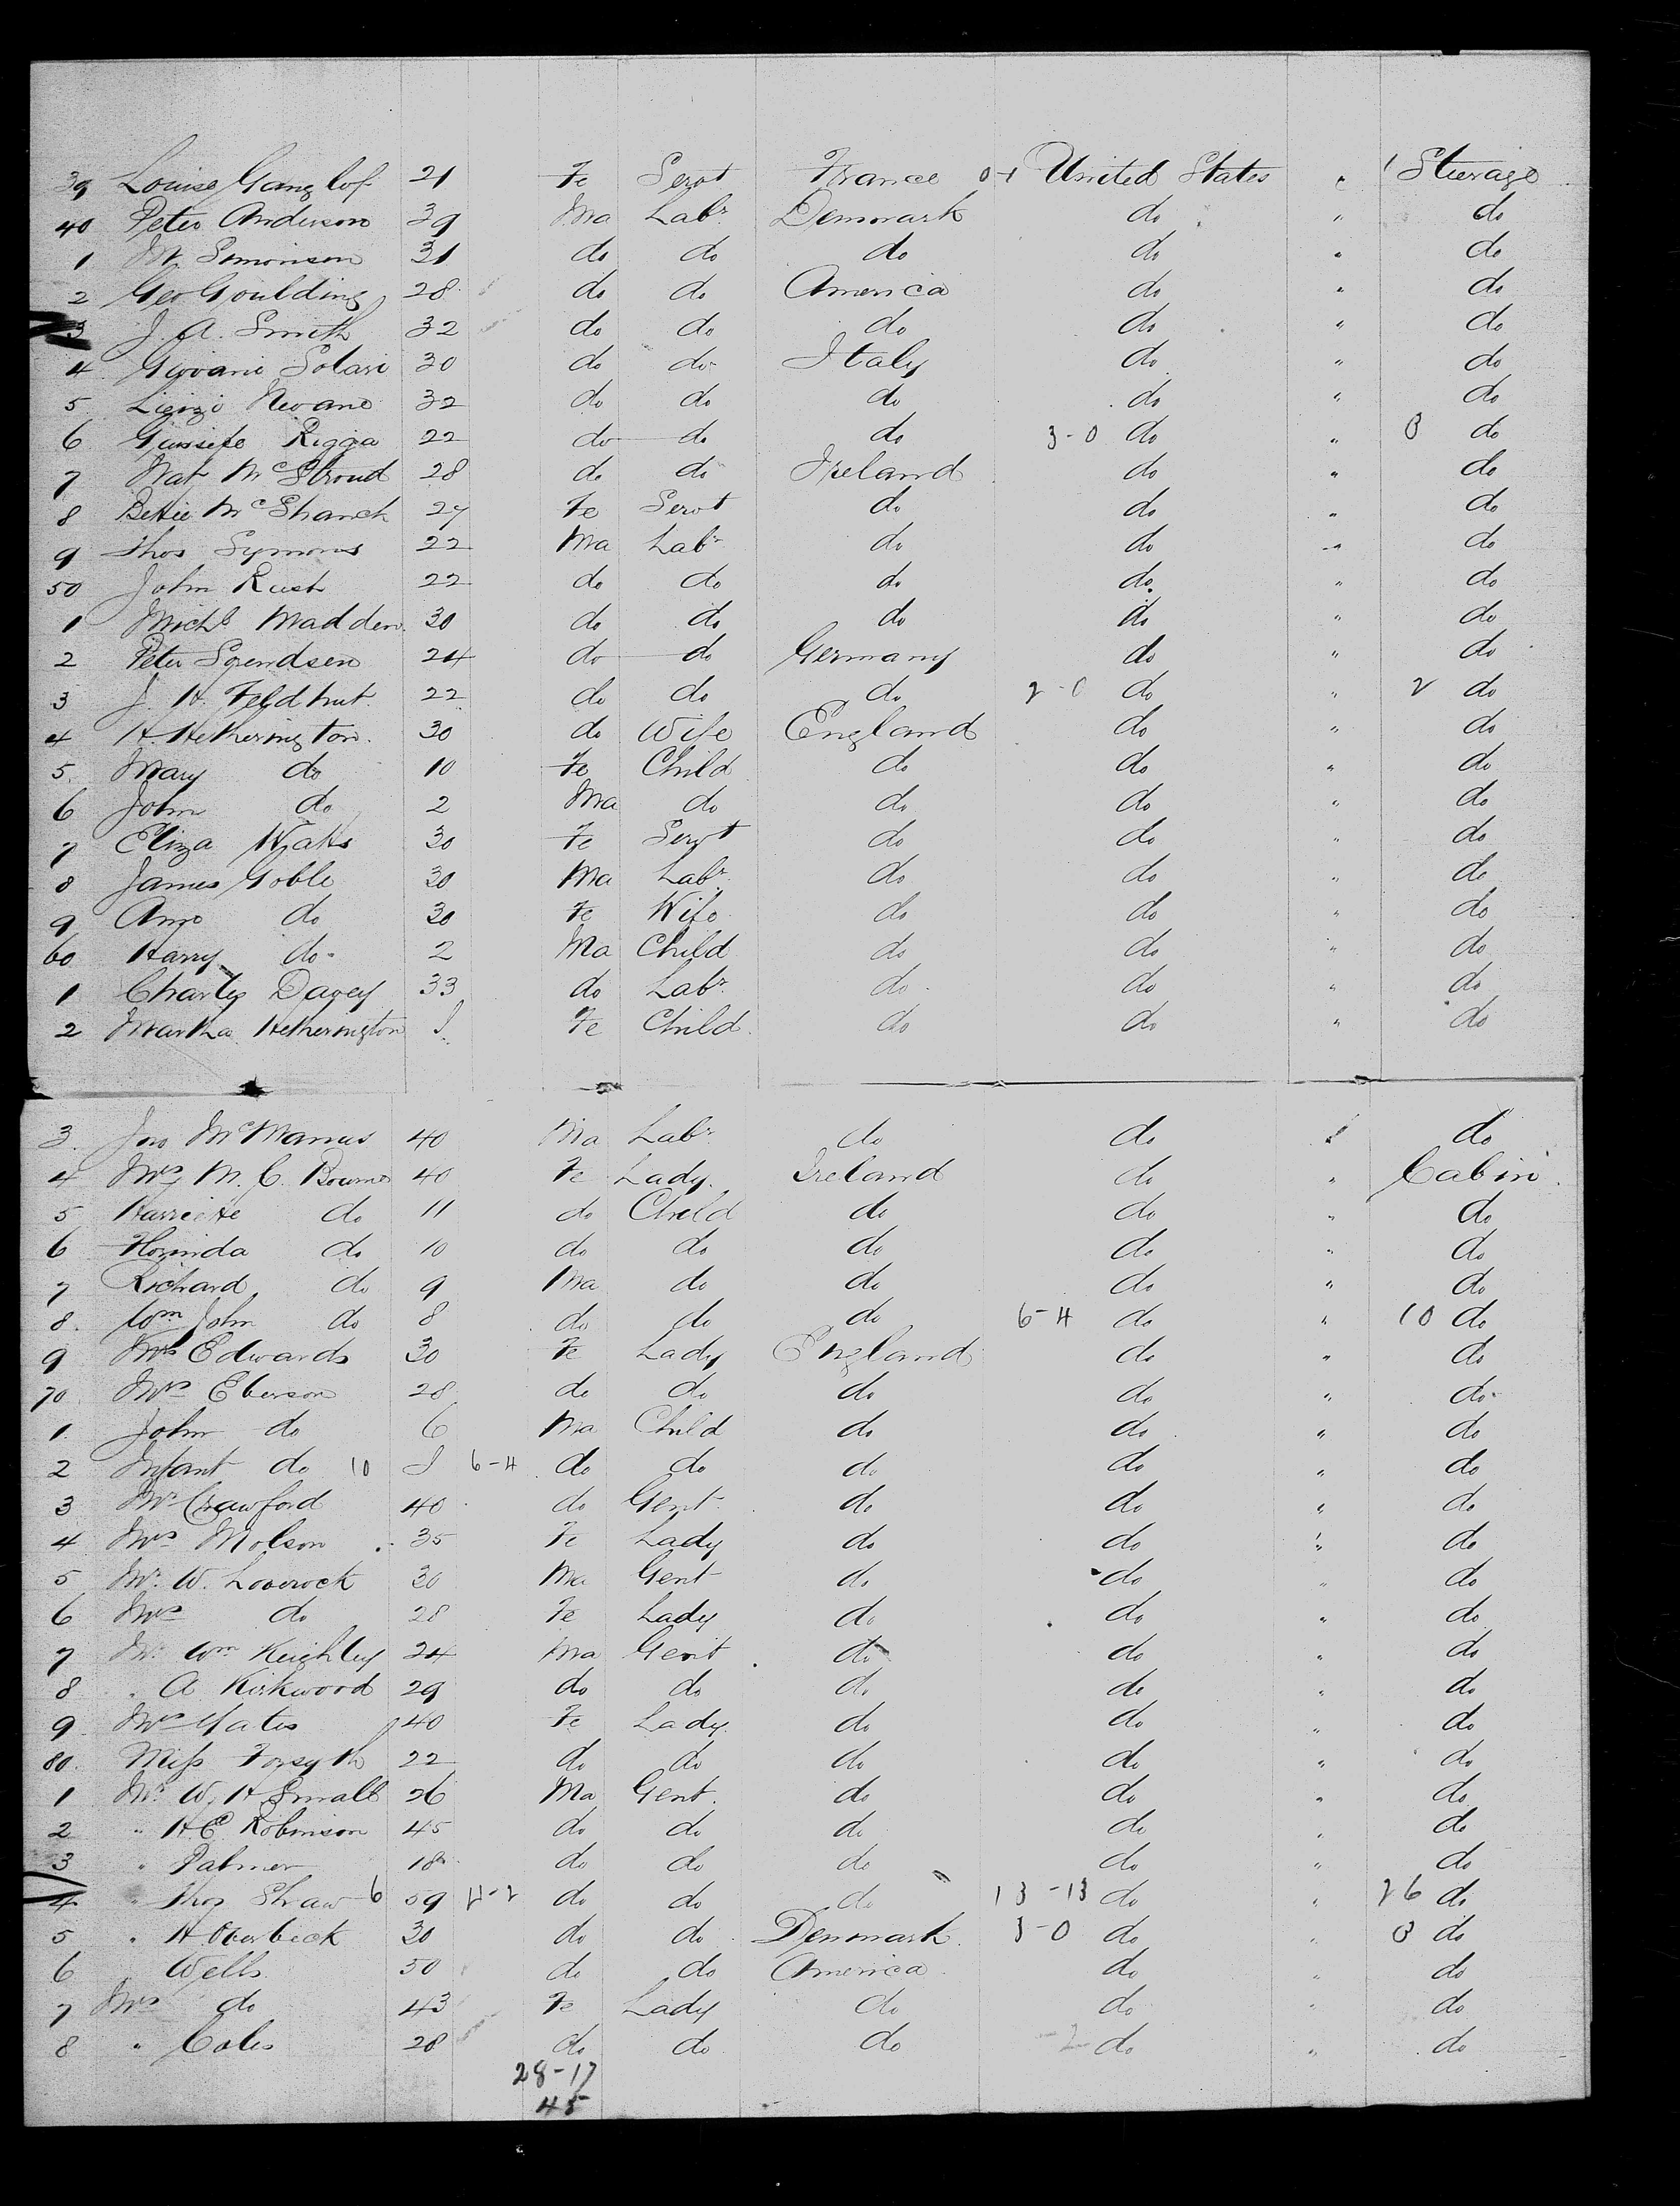 39 Louise Ganglof 21 Fe Servt France 0+1 United States " 1 Steerage
40 Peter Anderson 39 Ma Labr Denmark do " do
1 M Simonsen 31 do do do do " do
2 Geo Goulding 28 do do America do " do
3 J. A. Smith 32 do do do do " do
4 Giovani Solari 30 do do Italy do " do
5 32 do do do do " do
6 Guisife Rigga 22 do do do 3-0 do " 3 do
7 Nat McStroud 28 do do Ireland do " do
8 Bettie McShanck 27 Fe Servt do do " do
9 Thos Symons 22 Ma Labr do do " do
50 John Rush 22 do do do do " do
1 Michl Madden 30 do do do do " do
2 Peter Sgendsen 24 do do Germany do " do
3 J. H. Feldhut 22 do do do 2-0 do " 2 do
4 H. Hetherington 30 do Wife England do " do
5 Mary do 10 Fe Child do do " do
6 John do 2 Ma do do do " do
7 Eliza Watts 30 Fe Servt do do " do
8 James Goble 30 Ma Labr do do " do
9 Ann do 30 Fe Wife do do " do
60 Harry do 2 Ma Child do do " do
1 Charly Davey 33 do Labr do do " do
2 Martha Hetherington I Fe Child do do " do
3 Jno McManus 40 Ma Labr do do " do
4 Mrs M. C. Bourne 40 Fe Lady Ireland do " Cabin
5 Harriette do 11 do Child do do " do
6 Florinda do 10 do do do do " do
7 Richard do 9 Ma do do do " do
8 Wm John do 8 do do do 6-4 do " 10 do
9 Mrs Edwards 30 Fe Lady England do " do
70 Mrs Eberson 28 do do do do " do
1 John do 6 Ma Child do do " do
2 Infant do 10 I 6-4 do do do do " do
3 Mr Crawford 40 do Gent do do " do
4 Mrs Molson 35 Fe Lady do do " do
5 Mr W. Loverock 30 Ma Gent do do " do
6 Mrs do 28 Fe Lady do do " do
7 Mr Wm Keighley 24 Ma Gent do do " do
8 " A Kirkwood 29 do do do do " do
9 Mrs Yates 40 Fe Lady do do " do
80 Miss Forsyth 22 do do do do " do
1 Mr W. H Small 26 Ma Gent do do " do
2 " H. C. Robinson 45 do do do do " do
3 " Palmer 18 do do do do " do
4 " Thos Shaw 6 59 4-2 do do do 13-13 do " 26 do
5 " H. Overbeck 30 do do Denmark 3-0 do " 3 do
6 Wells 50 do do America do " do
7 Mrs do 43 Fe Lady do do " do
8 " Coles 28 do do do -2 do " do
28-17
45